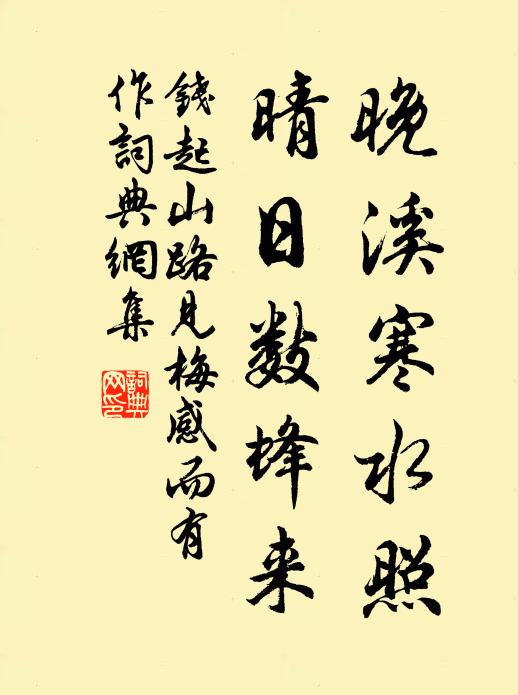 晚溪寒水照
晴日数蜂来
錢起山路見梅感而有
作詞典網集
詞典网印